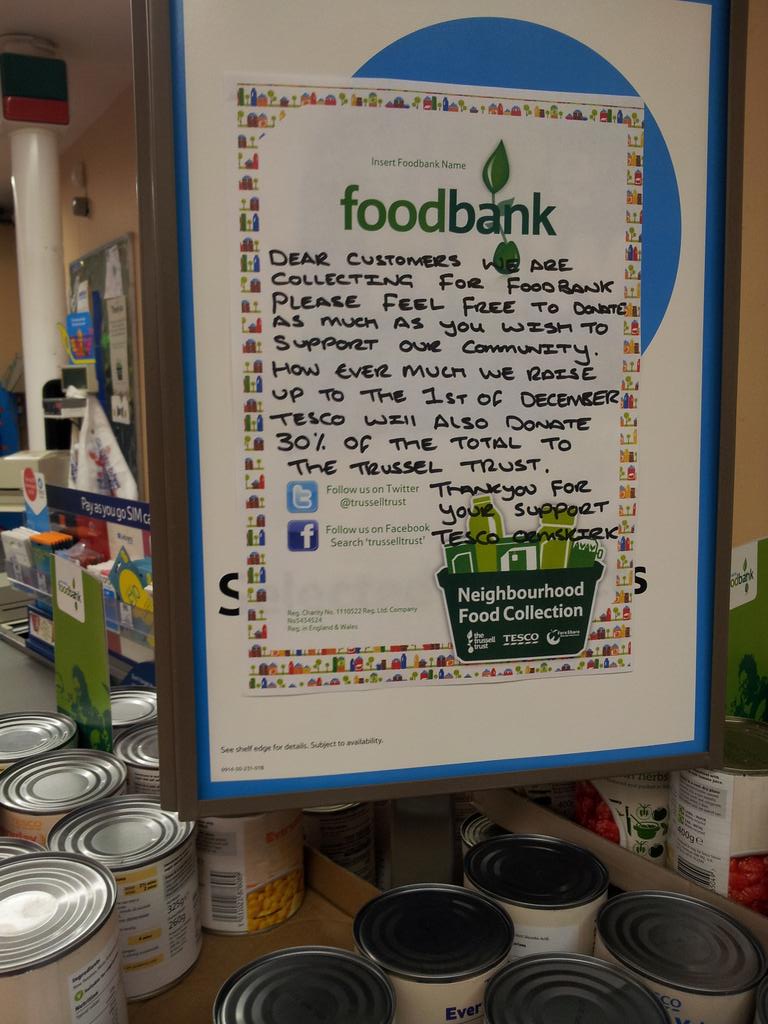 Insert Foodbank Name
foodbank
DEAR CUSTOMERS WE ARE
COLLECTING FOR FOODBANK
PLEASE FEEL FREE TO DONATE
AS MUCH AS YOU WISH TO
SUPPORT OUR COMMUNITY.
HOW EVER MUCH WE RAISE
UP TO THE 1ST OF DECEMBER
TESCO WILL ALSO DONATE
30% OF THE TOTAL TO
THE TRUSSEL TRUST.
THANKYOU FOR
YOUR SUPPORT
TESCO ORMSKIRK
Follow us on Twitter
@trusselltrust
Follow us on Facebook
Search 'trusselltrust'
Neighbourhood
Food Collection
the
trussell
trust
TESCO
FareShare
Reg. Charity No. 1110522 Reg. Ltd. Company
No5434524
Reg. in England & Wales
S
s
See shelf edge for details. Subject to availability.
Pay as you go SIM ca
foodbank
dbank
herbs
400g
325g
260g
Ever
Ever
SCO
Ingredients
Nutrition